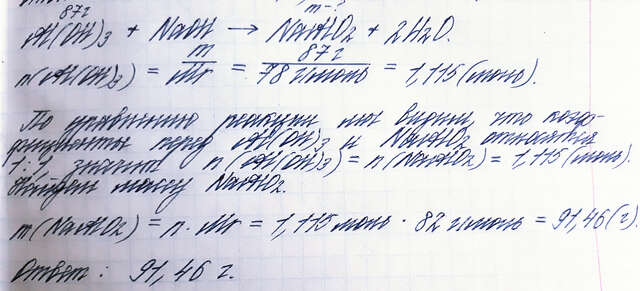 87г m-?
Al(OH)3 + NaOH → NaAlO2 + 2H2O.
n(Al(OH)3) = m/Mr = 87г/78 г/моль = 1,115 (моль).
По уравнению реакции мы видим, что коэф-
фициенты перед Al(OH)3 и NaAlO2 относятся
1:1, значит n(Al(OH)3) = n(NaAlO2) = 1,115 (моль).
Найдём массу NaAlO2.
m(NaAlO2) = n · Mr = 1,115 моль · 82 г/моль = 91,46 (г).
Ответ: 91,46 г.